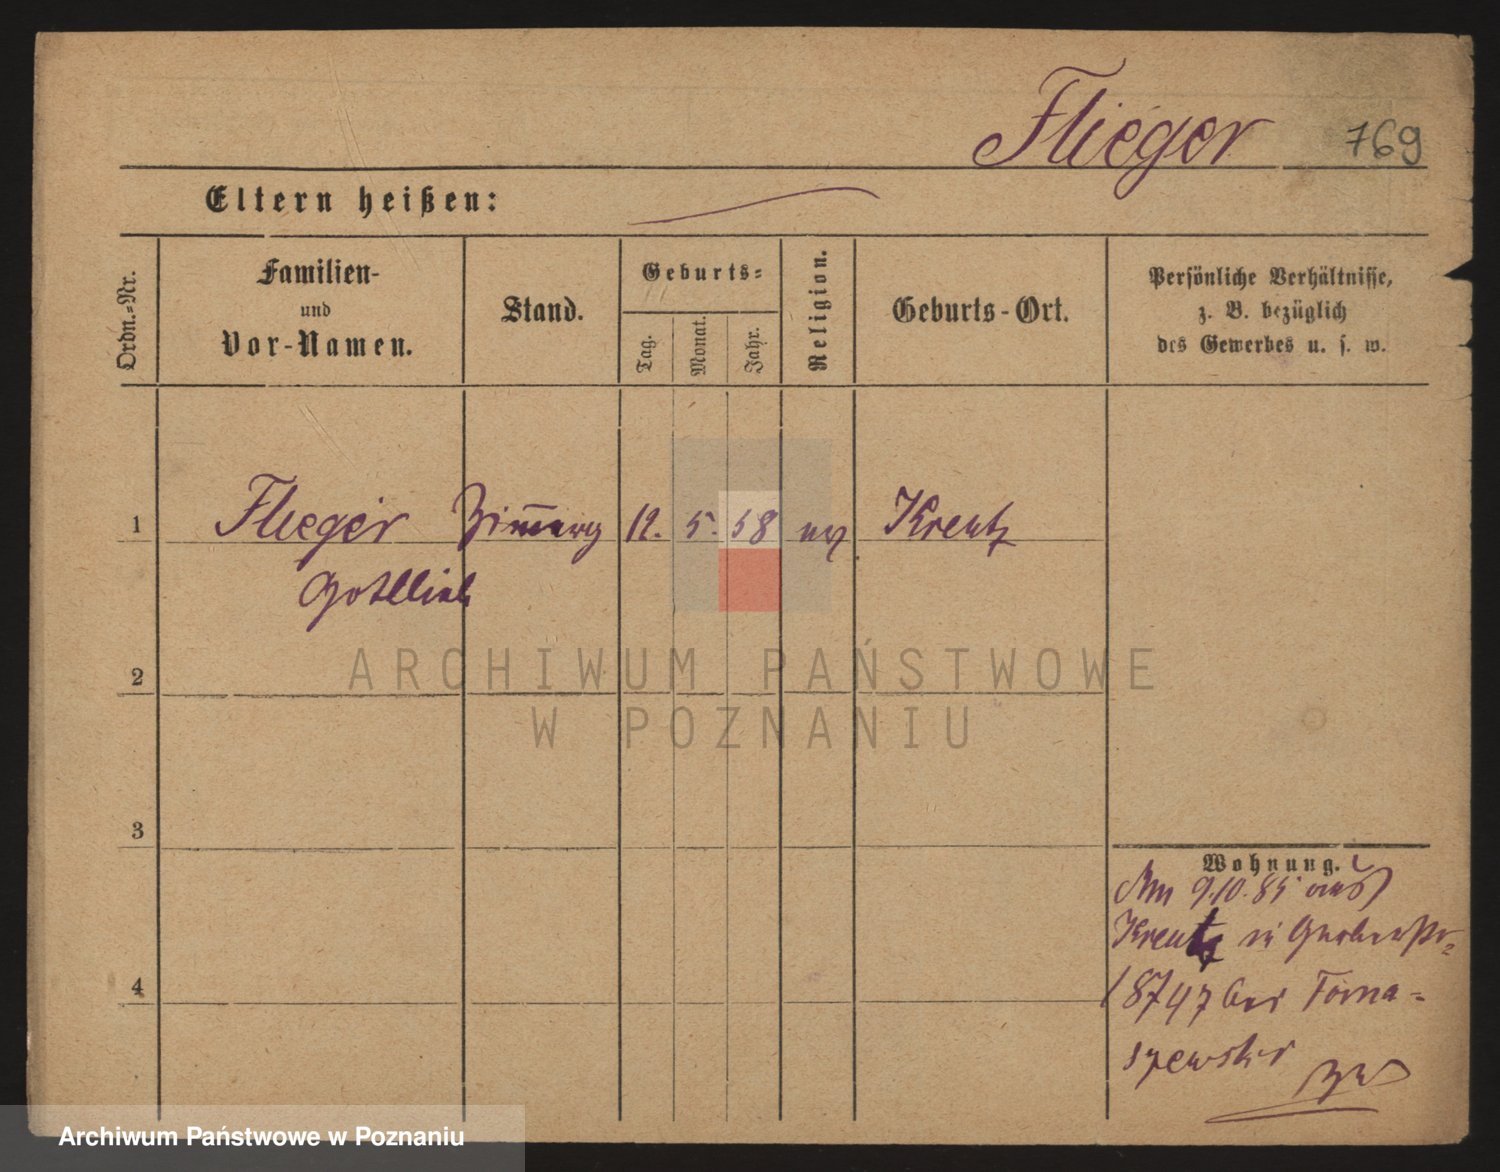 Flieger 769
Eltern heißen:
Ordn.-Nr.
Familien-
und
Vor-Namen.
Stand.
Geburts-
Tag.
Monat.
Jahr.
Religion.
Geburts-Ort.
Persönliche Verhältnisse,
z. B. bezüglich
des Gewerbes u. s. w.
1 Flieger 12. 5. 58 Kreutz
Gottlieb
ARCHIWUM PAŃSTWOWE
W POZNANIU
2
3
4
Wohnung.
Am 9.10.85 aus
Kreutz in
bei Toma-
szewski
Archiwum Państwowe w Poznaniu